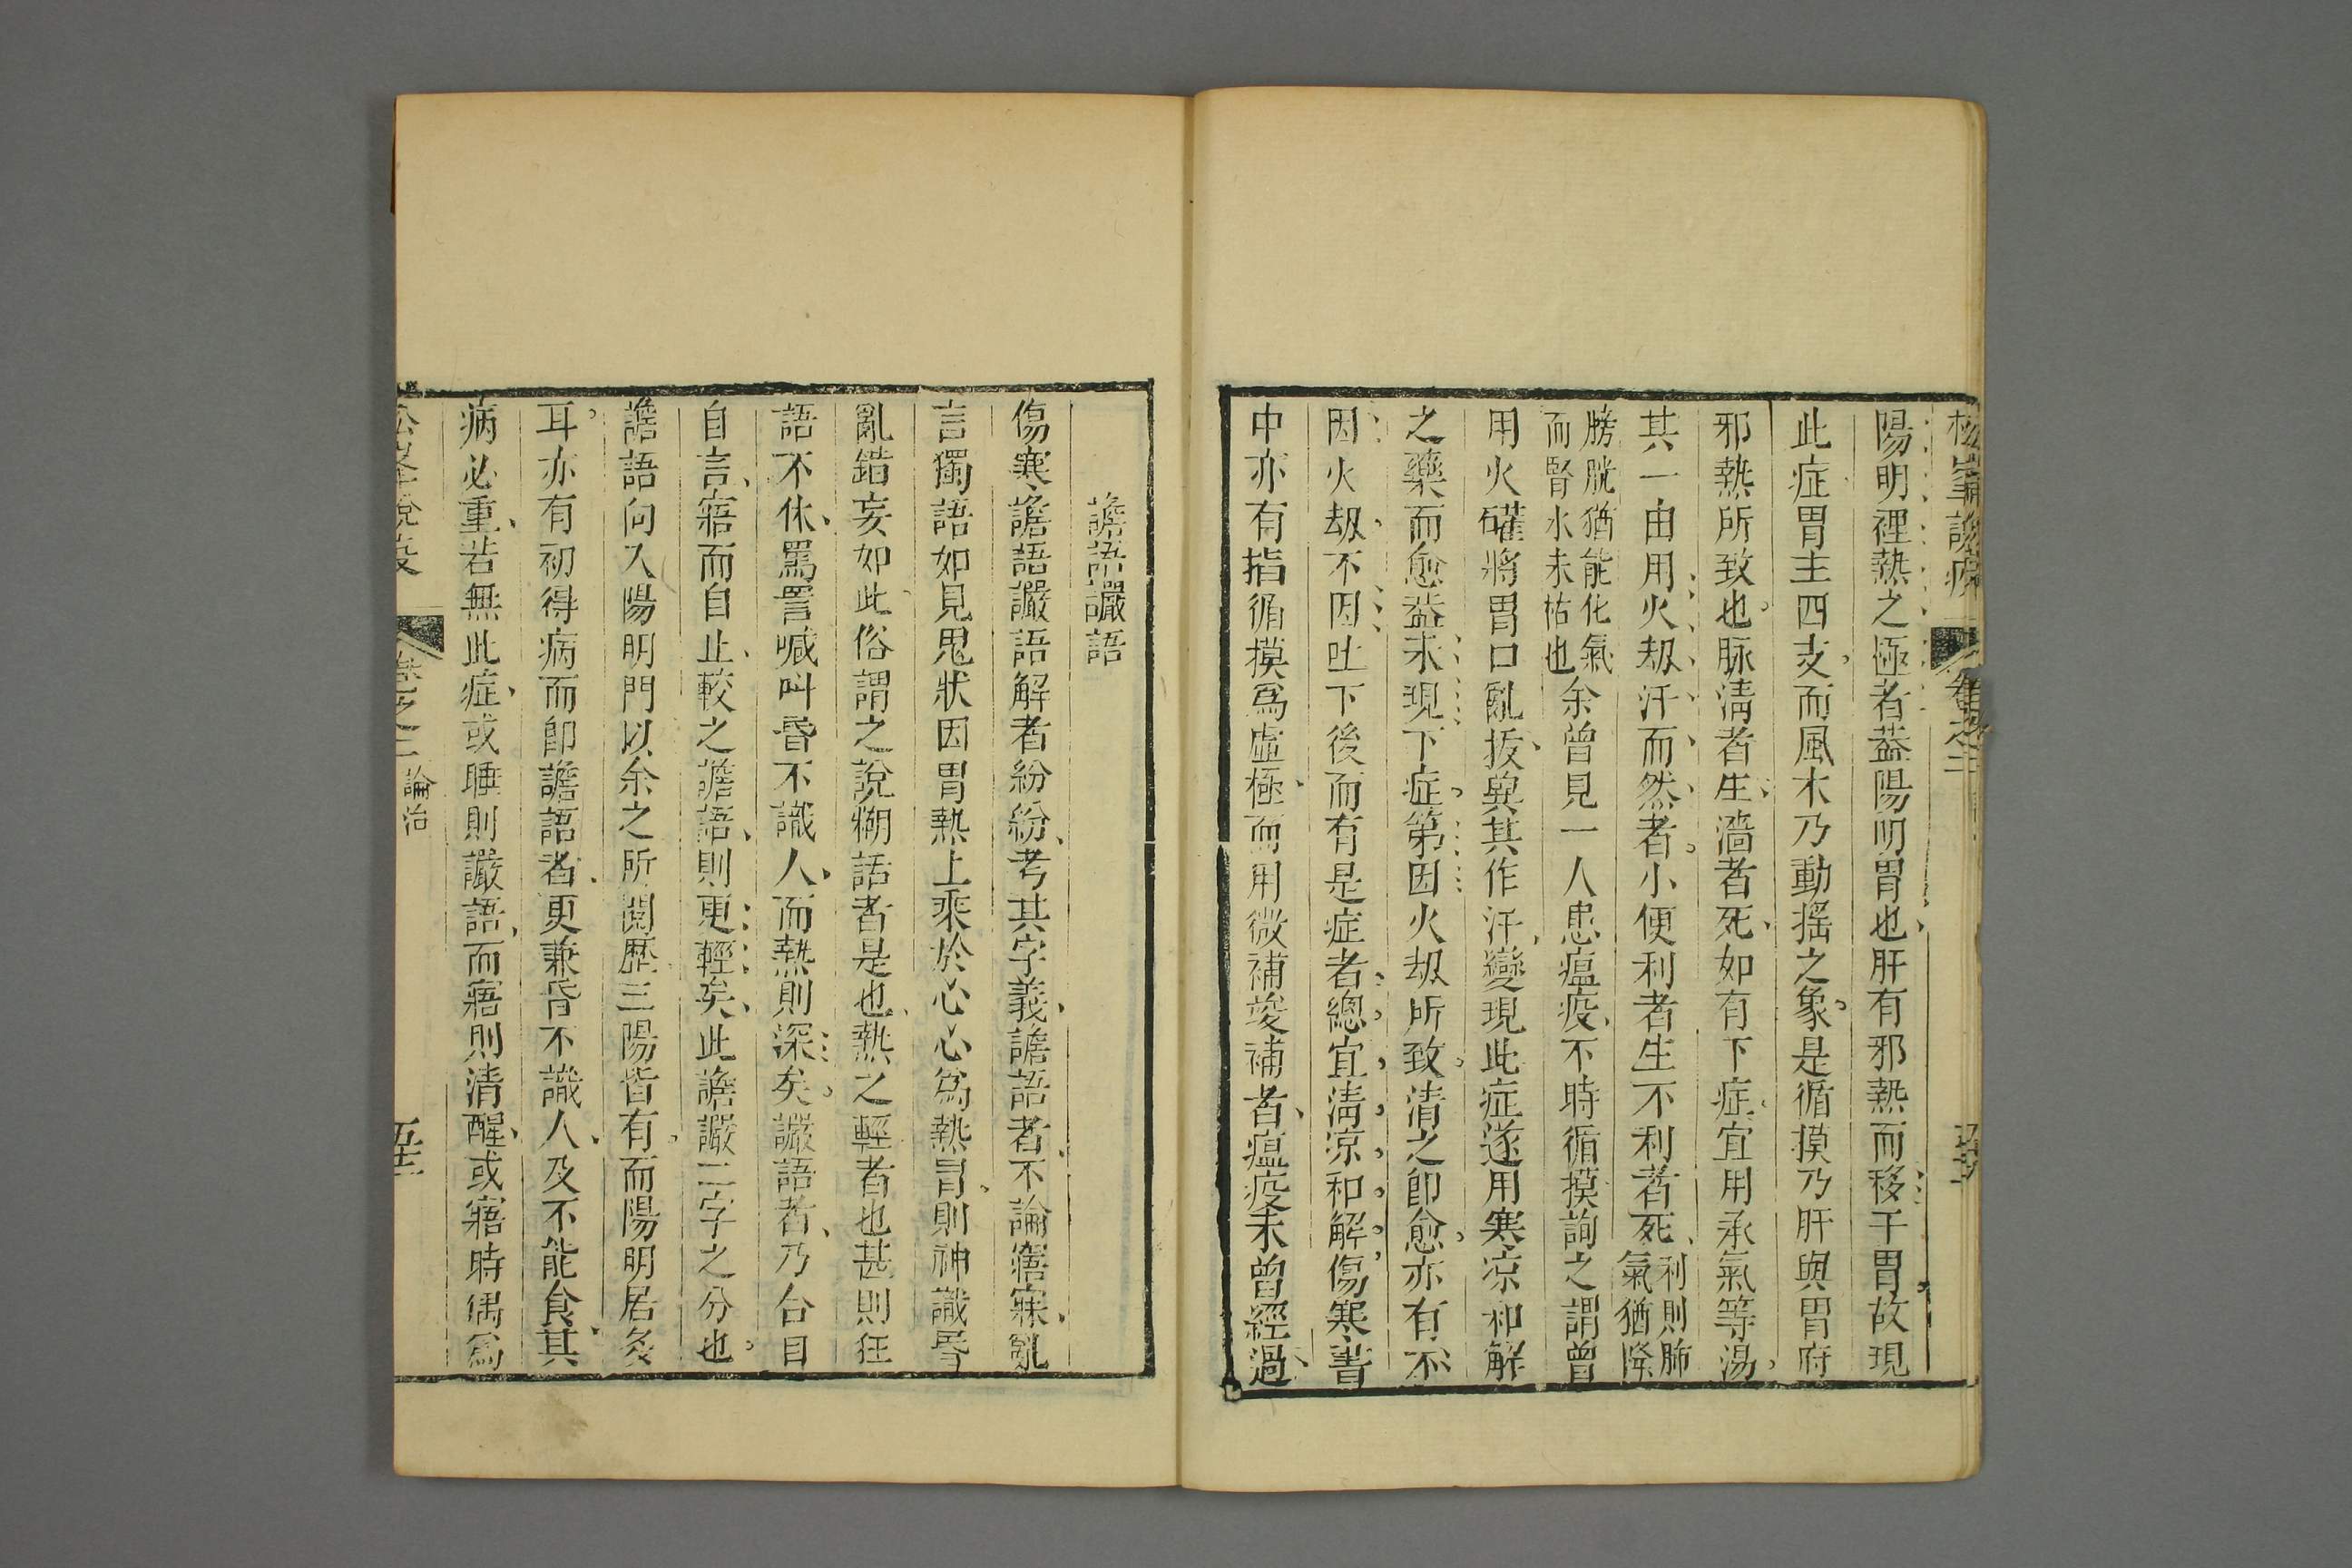 松峯說疫 卷之二
陽明裡熱之極者葢陽明胃也肝有邪熱而移于胃故現
此症胃主四支而風木乃動搖之象是循摸乃肝與胃府
邪熱所致也脉淸者生濇者死如有下症宜用承氣等湯
其一由用火刼汗而然者小便利者生不利者死利則肺氣猶降
膀胱猶能化氣而腎水未枯也余曾見一人患瘟疫不時循摸詢之謂曾
用火罐將胃口亂拔與其作汗變現此症遂用寒凉和解
之藥而愈葢未現下症第因火刼所致淸之卽愈亦有不
因火刼不因吐下後而有是症者總宜淸凉和解傷寒書
中亦有指循摸爲虛極而用微補峻補者瘟疫未曾經過
譫語讝語
傷寒譫語讝語解者紛紛考其字義譫語者不論寤寐亂
言獨語如見鬼狀因胃熱上乘於心心爲熱冒則神識昏
亂錯妄如此俗謂之說糊話者是也熱之輕者也甚則狂
語不休罵詈喊叫昏不識人而熱則深矣讝語者乃合目
自言寤而自止較之譫語則更輕矣此譫讝二字之分也
譫語向入陽明門以余之所閱歷三陽皆有而陽明居多
耳亦有初得病而卽譫語者更兼昏不識人及不能食其
病必重若無此症或睡則讝語而寤則清醒或寤時偶爲
松峯說疫 卷之二論治